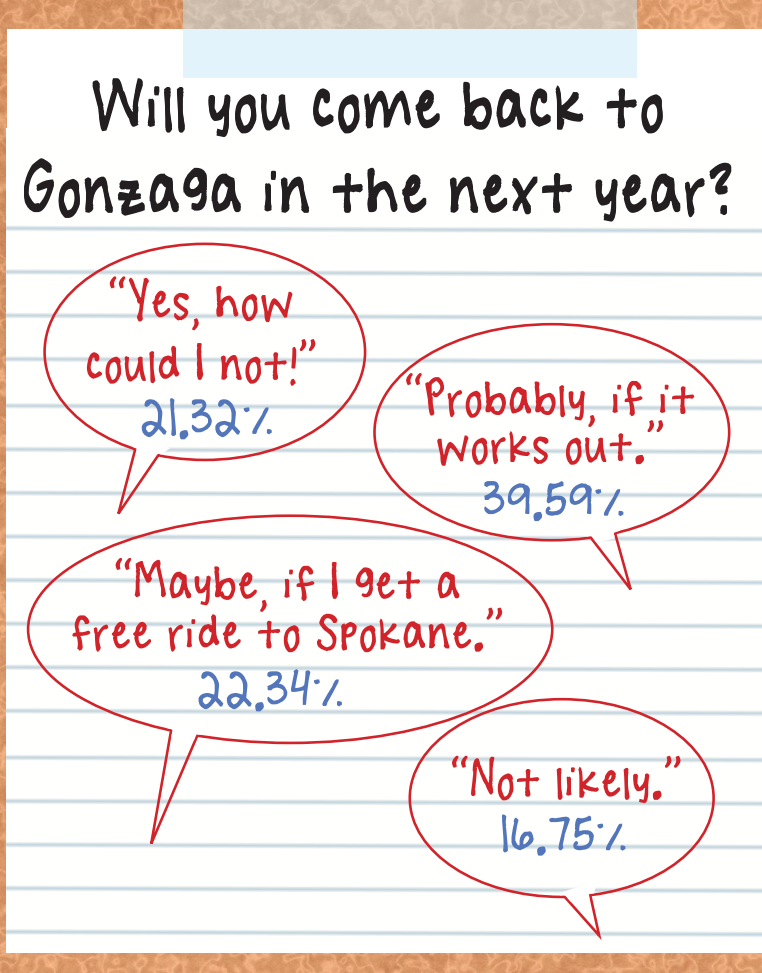 Will you come back to
Gonzaga in the next year?
“Yes, how
could I not!”
21.32%
“Probably, if it
works out.”
39.59%
“Maybe, if I get a
free ride to Spokane.”
22.34%
“Not likely.”
16.75%